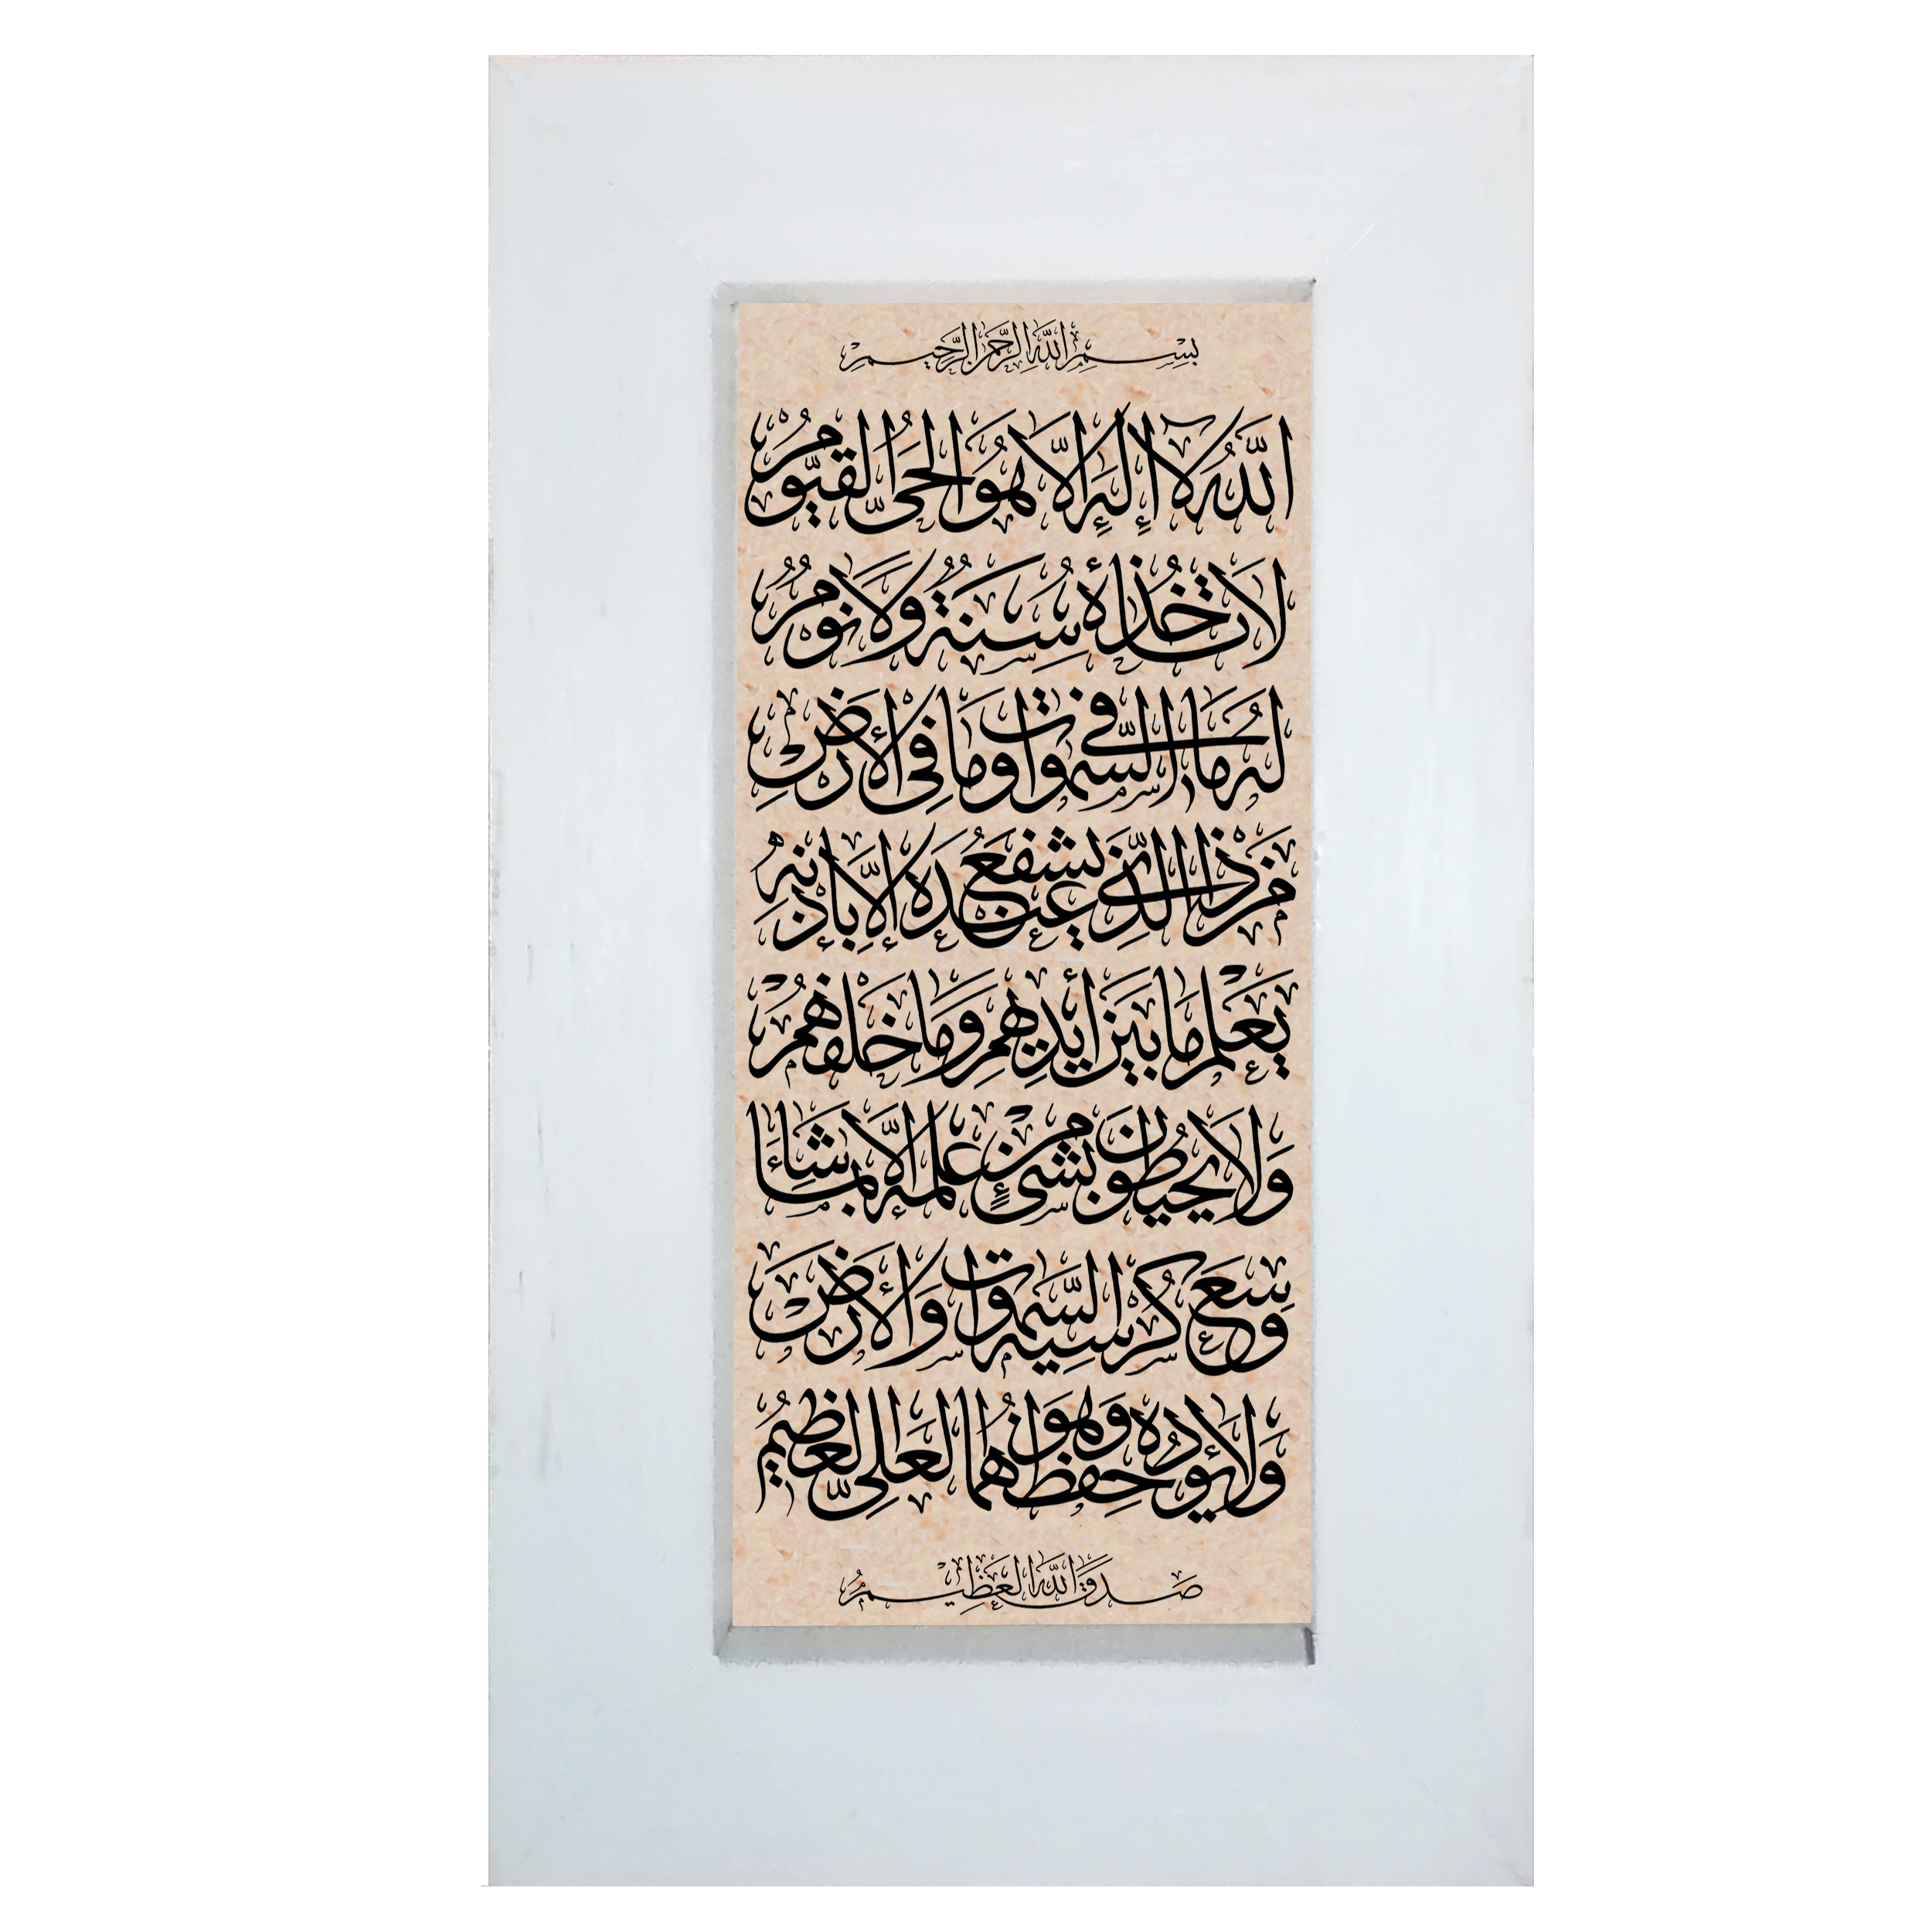 بِسْمِ اللَّهِ الرَّحْمَنِ الرَّحِيمِ
اللَّهُ لَا إِلَهَ إِلَّا هُوَ الْحَيُّ الْقَيُّومُ
لَا تَأْخُذُهُ سِنَةٌ وَلَا نَوْمٌ
لَهُ مَا فِي السَّمَوَاتِ وَمَا فِي الْأَرْضِ
مَنْ ذَا الَّذِي يَشْفَعُ عِنْدَهُ إِلَّا بِإِذْنِهِ
يَعْلَمُ مَا بَيْنَ أَيْدِيهِمْ وَمَا خَلْفَهُمْ
وَلَا يُحِيطُونَ بِشَيْءٍ مِنْ عِلْمِهِ إِلَّا بِمَا شَاءَ
وَسِعَ كُرْسِيُّهُ السَّمَوَاتِ وَالْأَرْضَ
وَلَا يَئُودُهُ حِفْظُهُمَا وَهُوَ الْعَلِيُّ الْعَظِيمُ
صَدَقَ اللَّهُ الْعَظِيمُ